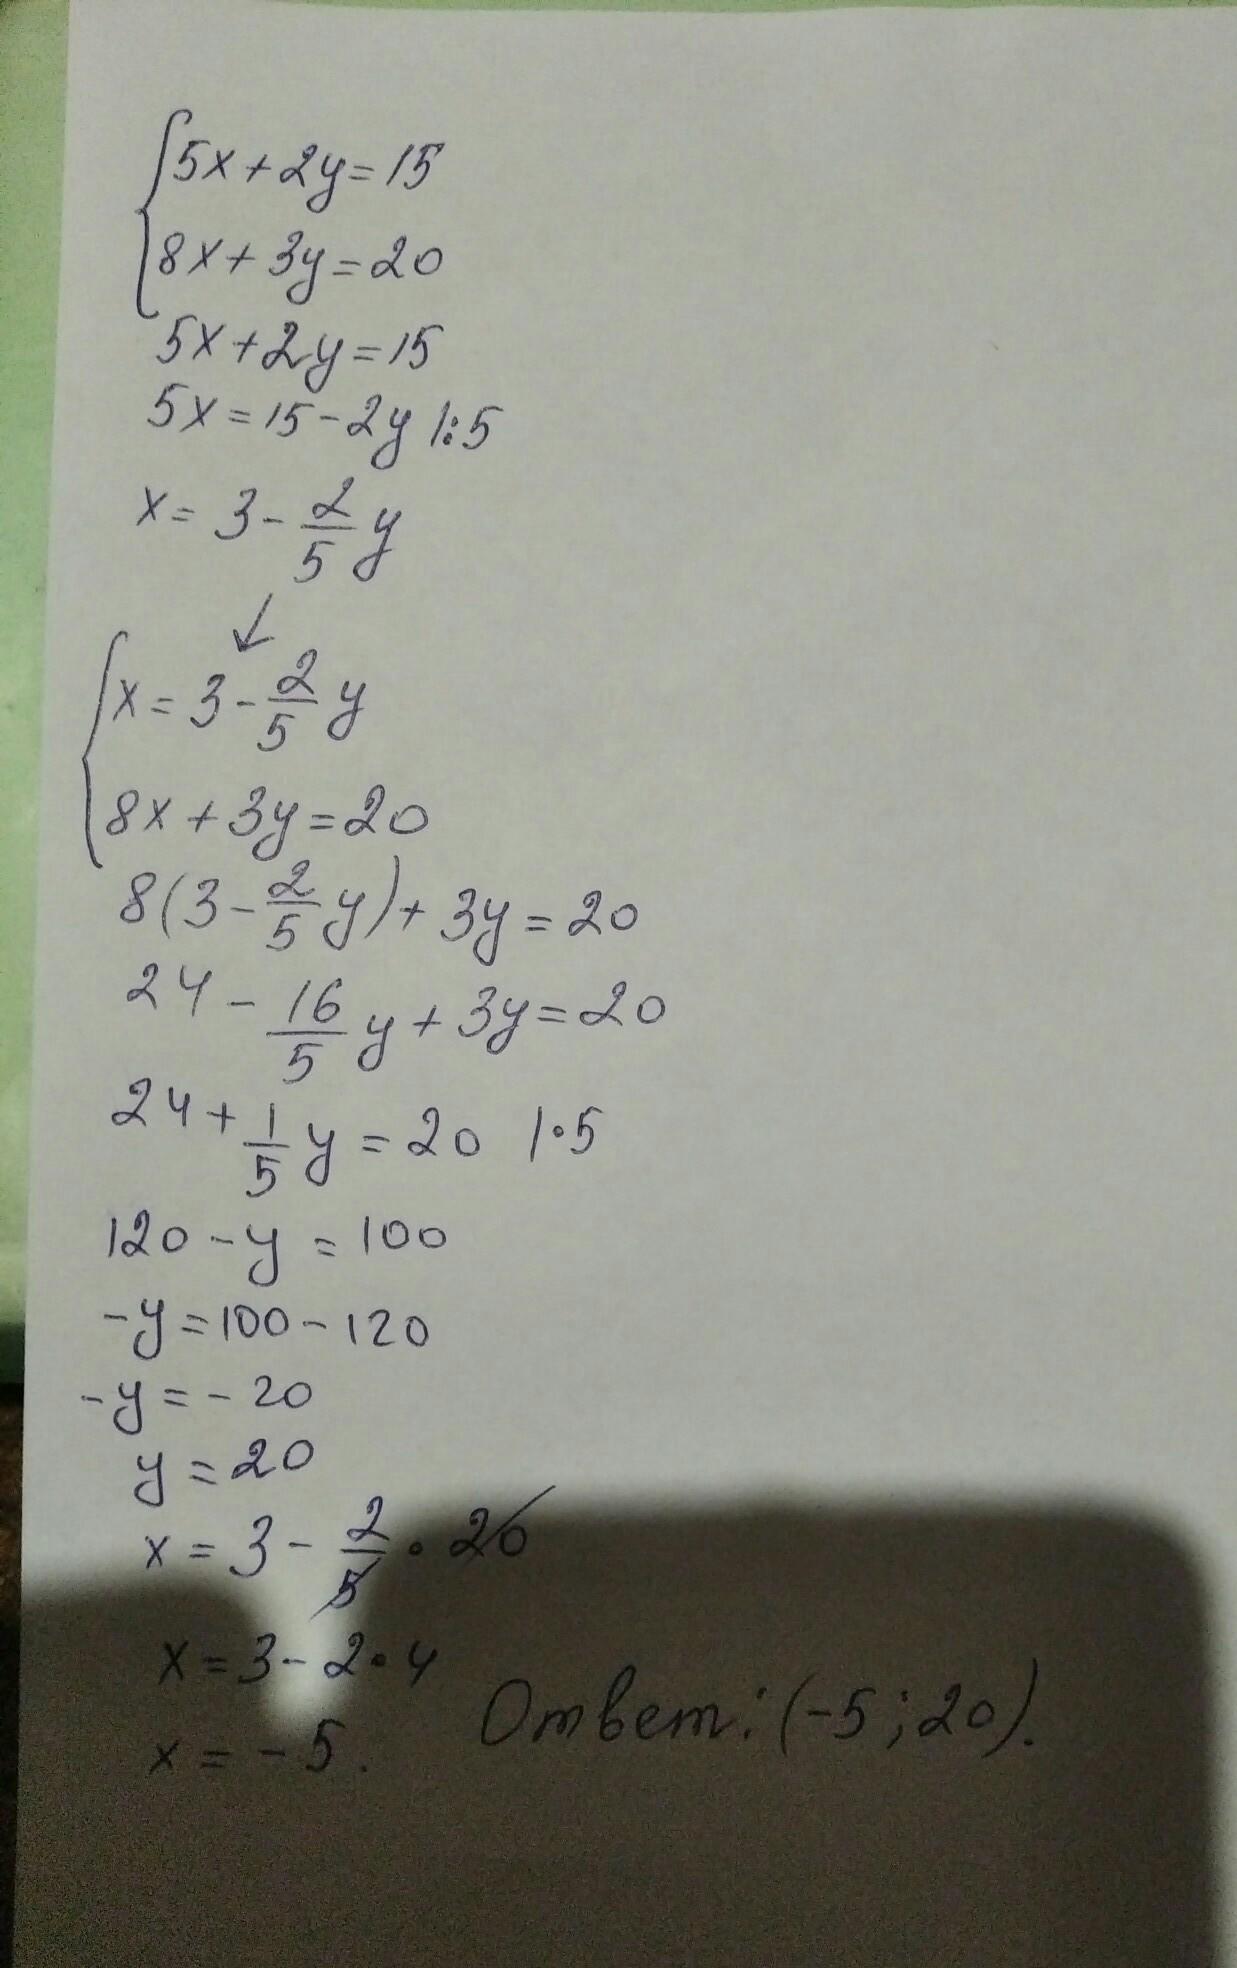 {5x+2y=15
{8x+3y=20
5x+2y=15
5x=15-2y |:5
x=3-2/5 y
↙
{x=3-2/5 y
{8x+3y=20
8(3-2/5 y)+3y=20
24-16/5 y+3y=20
24+1/5 y=20 |·5
120-y=100
-y=100-120
-y=-20
y=20
x=3-2/5·20
x=3-2·4
x=-5.
Ответ: (-5;20).